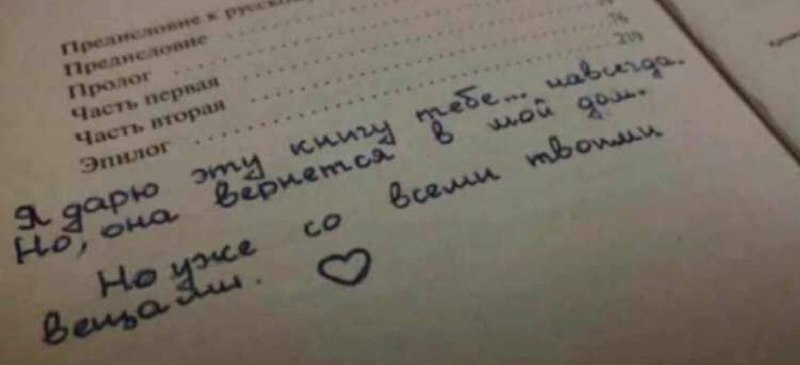 Предисловие к русско
Предисловие
Пролог
Часть первая
Часть вторая 76
Эпилог 219
Я дарю эту книгу тебе... навсегда.
Но, она вернется в мой дом.
Но уже со всеми твоими
вещами. ♡